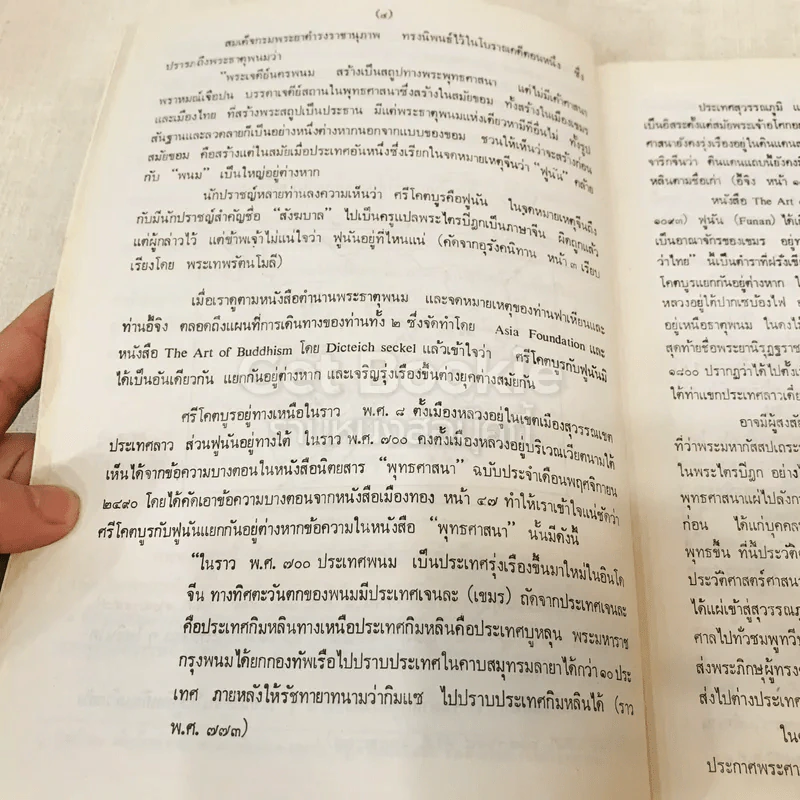 (๔)
สมเด็จกรมพระยาดำรงราชานุภาพ ทรงนิพนธ์ไว้ในโบราณคดีตอนหนึ่ง ซึ่ง
ปรารภถึงพระธาตุพนมว่า
"พระเจดีย์นครพนม สร้างเป็นสถูปทางพระพุทธศาสนา แต่ไม่มีเค้าศาสนา
พราหมณ์เจือปน บรรดาเจดีย์สถานในพุทธศาสนาซึ่งสร้างในสมัยขอม ทั้งสร้างในเมืองเขมร
และเมืองไทย ที่สร้างพระสถูปเป็นประธาน มีแต่พระธาตุพนมแห่งเดียวหามีที่อื่นไม่ ทั้งรูป
สัณฐานและลวดลายก็เป็นอย่างหนึ่งต่างหากนอกจากแบบของขอม ชวนให้เห็นว่าจะสร้างก่อน
สมัยขอม คือสร้างแต่ในสมัยเมื่อประเทศอันหนึ่งซึ่งเรียกในจดหมายเหตุจีนว่า "ฟูนัน" คล้าย
กับ "พนม" เป็นใหญ่อยู่ต่างหาก
นักปราชญ์หลายท่านลงความเห็นว่า ศรีโคตบูรคือฟูนัน ในจดหมายเหตุจีนถึง
กับมีนักปราชญ์สำคัญชื่อ "สังฆบาล" ไปเป็นครูแปลพระไตรปิฎกเป็นภาษาจีน ผิดถูกแล้ว
แต่ผู้กล่าวไว้ แต่ข้าพเจ้าไม่แน่ใจว่า ฟูนันอยู่ที่ไหนแน่ (คัดจากอุรังคนิทาน หน้า ๓ เรียบ
เรียงโดย พระเทพรัตนโมลี)
เมื่อเราดูตามหนังสือตำนานพระธาตุพนม และจดหมายเหตุของท่านฟาเหียนและ
ท่านอี้จิง ตลอดถึงแผนที่การเดินทางของท่านทั้ง ๒ ซึ่งจัดทำโดย Asia Foundation และ
หนังสือ The Art of Buddhism โดย Dicteich seckel แล้วเข้าใจว่า ศรีโคตบูรกับฟูนันมิ
ได้เป็นอันเดียวกัน แยกกันอยู่ต่างหาก และเจริญรุ่งเรืองขึ้นต่างยุคต่างสมัยกัน
ศรีโคตบูรอยู่ทางเหนือในราว พ.ศ. ๘ ตั้งเมืองหลวงอยู่ในเขตเมืองสุวรรณเขต
ประเทศลาว ส่วนฟูนันอยู่ทางใต้ ในราว พ.ศ. ๗๐๐ คงตั้งเมืองหลวงอยู่บริเวณเวียตนามใต้
เห็นได้จากข้อความบางตอนในหนังสือนิตยสาร "พุทธศาสนา" ฉบับประจำเดือนพฤศจิกายน
๒๔๙๐ โดยได้คัดเอาข้อความบางตอนจากหนังสือเมืองทอง หน้า ๔๗ ทำให้เราเข้าใจแน่ชัดว่า
ศรีโคตบูรกับฟูนันแยกกันอยู่ต่างหากข้อความในหนังสือ "พุทธศาสนา" นั้นมีดังนี้
"ในราว พ.ศ. ๗๐๐ ประเทศพนม เป็นประเทศรุ่งเรืองขึ้นมาใหม่ในอินโด
จีน ทางทิศตะวันตกของพนมมีประเทศเจนละ (เขมร) ถัดจากประเทศเจนละ
คือประเทศกิมหลินทางเหนือประเทศกิมหลินคือประเทศบูหลุน พระมหาราช
กรุงพนมได้ยกกองทัพเรือไปปราบประเทศในคาบสมุทรมลายาได้กว่า ๑๐ ประ
เทศ ภายหลังให้รัชทายาทนามว่ากิมแซ ไปปราบประเทศกิมหลินได้ (ราว
พ.ศ. ๗๗๓)
ประเทศสุวรรณภูมิ
เป็นอิสระตั้งแต่สมัยพระเจ้าอโศก
ศาสนายังคงรุ่งเรืองอยู่ในดินแดน
จาริกจีนว่า ดินแดนแถบนี้ยังคง
หลินตามชื่อเก่า (อี้จิง หน้า
หนังสือ The Art of
๑๐๙๓) ฟูนัน (Funan) ได้
เป็นอาณาจักรของเขมร อยู่
ว่าไทย" นี้เป็นตำราที่ฝรั่งเขี
โคตบูรแยกกันอยู่ต่างหาก
หลวงอยู่ใต้ปากเซบ้องไฟ
อยู่เหนือธาตุพนม ในดงไ
สุดท้ายชื่อพระยานิรุฏฐราช
๑๘๐๐ ปรากฏว่าได้ไปตั้ง
ใต้ท่าแขกประเทศลาวเดี๋
อาจมีผู้สงสัย
ที่ว่าพระมหากัสสปเถระ
ในพระไตรปิฎก อย่าง
พุทธศาสนาแผ่ไปลังกา
ก่อน ได้แก่บุคคล
พุทธขึ้น ที่นี้ประวัติ
ประวัติศาสตร์ศาสนา
ได้แผ่เข้าสู่สุวรรณภู
ศาลไปทั่วชมพูทวีป
ส่งพระภิกษุผู้ทรง
ส่งไปต่างประเทศ
ใน
ประกาศพระศา